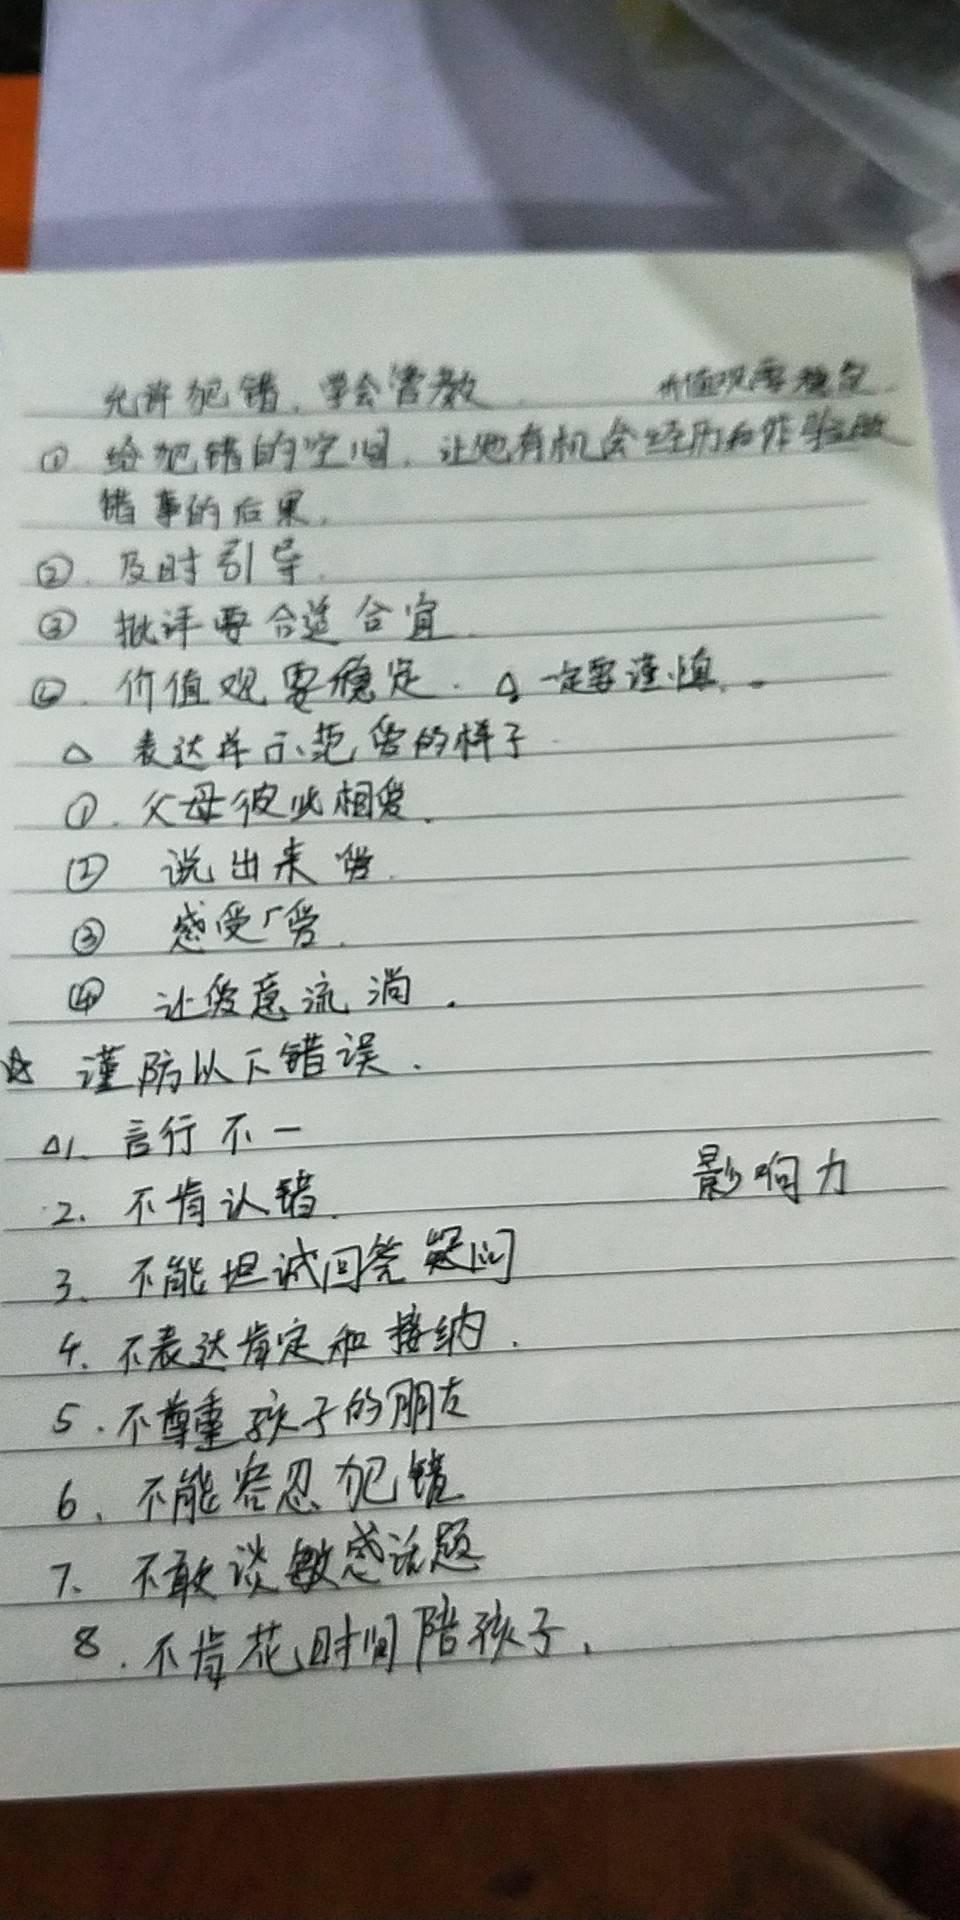 允许犯错、学会管教. 价值观要稳定.
① 给犯错的空间、让他有机会经历和体验做
错事的后果.
②. 及时引导.
③ 批评要合适合宜.
④. 价值观要稳定. △ 一定要谨慎.
△ 表达并示范爱的样子.
①. 父母彼此相爱.
② 说出来爱.
③ 感受广爱.
④ 让爱意流淌.
☆ 谨防以下错误.
△1. 言行不一
2. 不肯认错. 影响力
3. 不能坦诚回答疑问
4. 不表达肯定和接纳.
5. 不尊重孩子的朋友
6. 不能容忍犯错
7. 不敢谈敏感话题
8. 不肯花时间陪孩子.